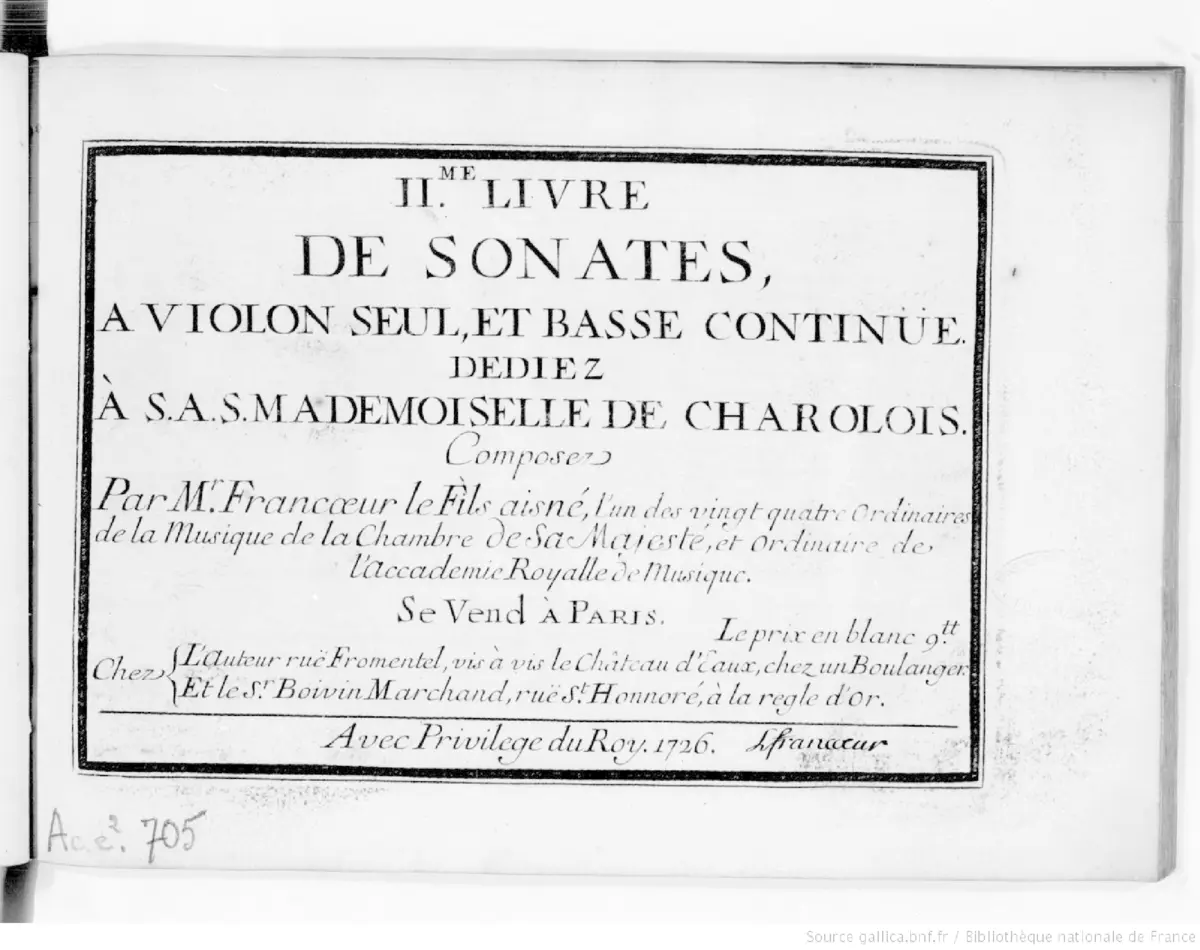 II.ME LIVRE
DE SONATES,
A VIOLON SEUL, ET BASSE CONTINÜE.
DEDIEZ
À S.A.S. MADEMOISELLE DE CHAROLOIS.
Composez
Par Mr. Francœur le Fils aisné, l'un des vingt quatre Ordinaires
de la Musique de la Chambre de Sa Majesté, et Ordinaire de
l'Accademie Royalle de Musique.
Se Vend à Paris.
Le prix en blanc 9.tt
Chez
L'Auteur ruë Fromentel, vis à vis le Château d'Eaux, chez un Boulanger.
Et le Sr. Boivin Marchand, ruë St. Honnoré, à la regle d'Or.
Avec Privilege du Roy. 1726. Lfrancœur
Ac. e². 705
Source gallica.bnf.fr / Bibliothèque nationale de France